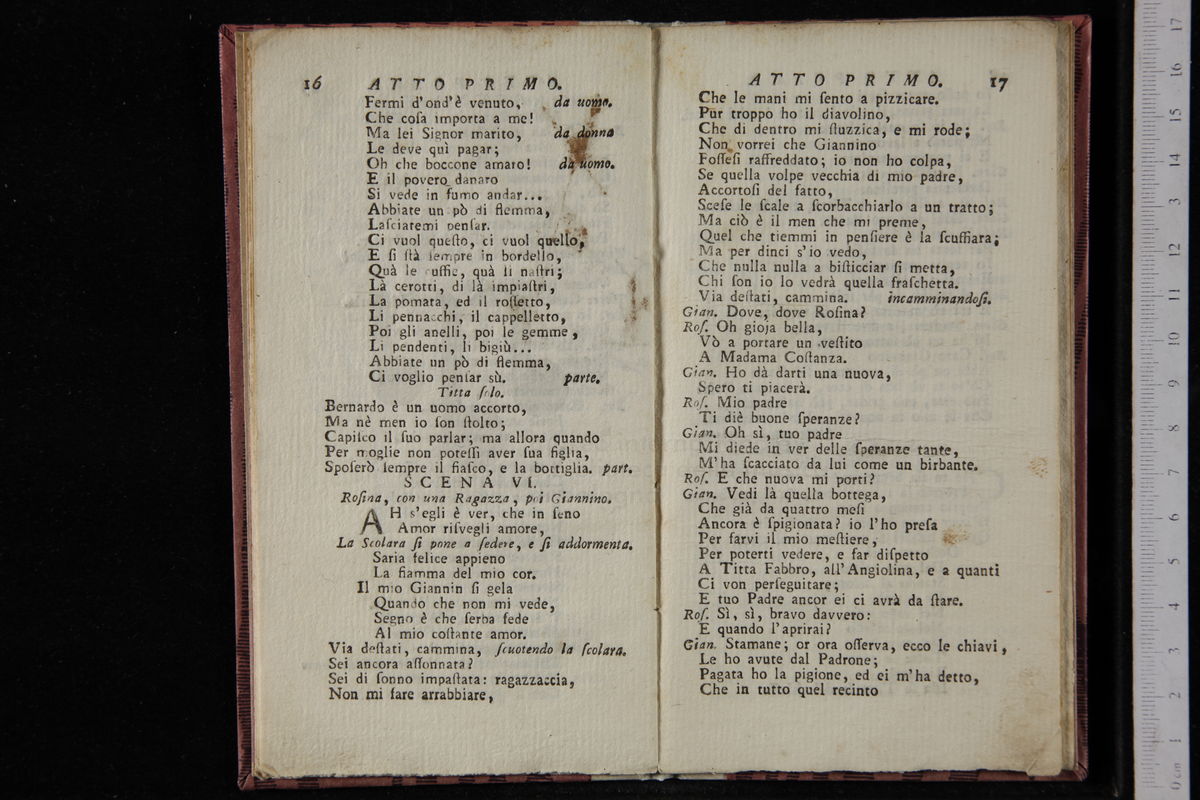 16 ATTO PRIMO.
Fermi d'ond'è venuto, da uomo.
Che coſa importa a me!
Ma lei Signor marito, da donna
Le deve quì pagar;
Oh che boccone amaro! da uomo.
E il povero danaro
Si vede in fumo andar...
Abbiate un pò di flemma,
Laſciatemi penſar.
Ci vuol queſto, ci vuol quello,
E ſi ſtà ſempre in bordello,
Quà le cuffie, quà li naſtri;
Là cerotti, di là impiaſtri,
La pomata, ed il roſſetto,
Li pennacchi, il cappelletto,
Poi gli anelli, poi le gemme,
Li pendenti, li bigiù...
Abbiate un pò di flemma,
Ci voglio penſar sù. parte.
Titta ſolo.
Bernardo è un uomo accorto,
Ma nè men io ſon ſtolto;
Capiſco il ſuo parlar; ma allora quando
Per moglie non poteſſi aver ſua figlia,
Spoſerò ſempre il fiaſco, e la bottiglia. part.
SCENA VI.
Roſina, con una Ragazza, poi Giannino.
AH s'egli è ver, che in ſeno
Amor riſvegli amore,
La Scolara ſi pone a ſedere, e ſi addormenta.
Saria felice appieno
La fiamma del mio cor.
Il mio Giannin ſi gela
Quando che non mi vede,
Segno è che ſerba fede
Al mio coſtante amor.
Via deſtati, cammina, ſcuotendo la ſcolara.
Sei ancora aſſonnata?
Sei di ſonno impaſtata: ragazzaccia,
Non mi fare arrabbiare,
ATTO PRIMO. 17
Che le mani mi ſento a pizzicare.
Pur troppo ho il diavolino,
Che di dentro mi ſtuzzica, e mi rode;
Non vorrei che Giannino
Foſſeſi raffreddato; io non ho colpa,
Se quella volpe vecchia di mio padre,
Accortoſi del fatto,
Sceſe le ſcale a ſcorbacchiarlo a un tratto;
Ma ciò è il men che mi preme,
Quel che tiemmi in penſiere è la ſcuffiara;
Ma per dinci s'io vedo,
Che nulla nulla a biſticciar ſi metta,
Chi ſon io lo vedrà quella fraſchetta.
Via deſtati, cammina. incamminandoſi.
Gian. Dove, dove Roſina?
Roſ. Oh gioja bella,
Vò a portare un veſtito
A Madama Coſtanza.
Gian. Ho dà darti una nuova,
Spero ti piacerà.
Roſ. Mio padre
Ti diè buone ſperanze?
Gian. Oh sì, tuo padre
Mi diede in ver delle ſperanze tante,
M'ha ſcacciato da lui come un birbante.
Roſ. E che nuova mi porti?
Gian. Vedi là quella bottega,
Che già da quattro meſi
Ancora è ſpigionata? io l'ho preſa
Per farvi il mio meſtiere,
Per poterti vedere, e far diſpetto
A Titta Fabbro, all'Angiolina, e a quanti
Ci von perſeguitare;
E tuo Padre ancor ei ci avrà da ſtare.
Roſ. Sì, sì, bravo davvero:
E quando l'aprirai?
Gian. Stamane; or ora oſſerva, ecco le chiavi,
Le ho avute dal Padrone;
Pagata ho la pigione, ed ei m'ha detto,
Che in tutto quel recinto
0 cm 1 2 3 4 5 6 7 8 9 10 11 12 13 14 15 16 17